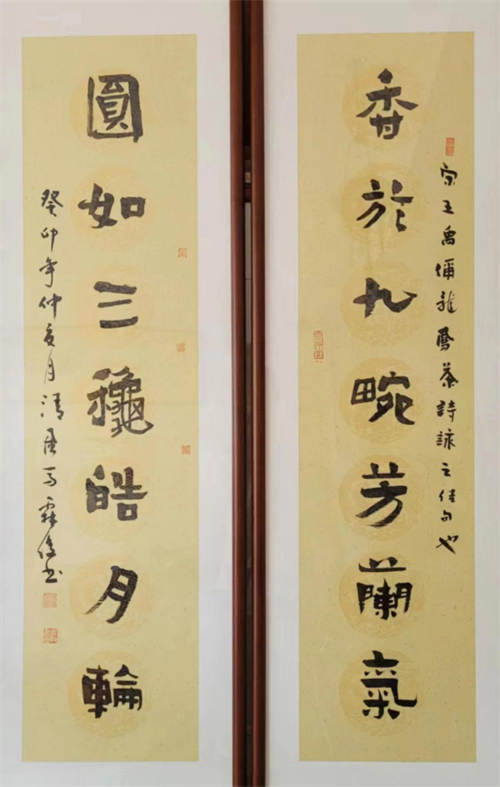 香於九畹芳蘭氣
宋王禹偁龍鳳茶詩詠之佳句也
圓如三龝皓月輪
癸卯年仲夏月清